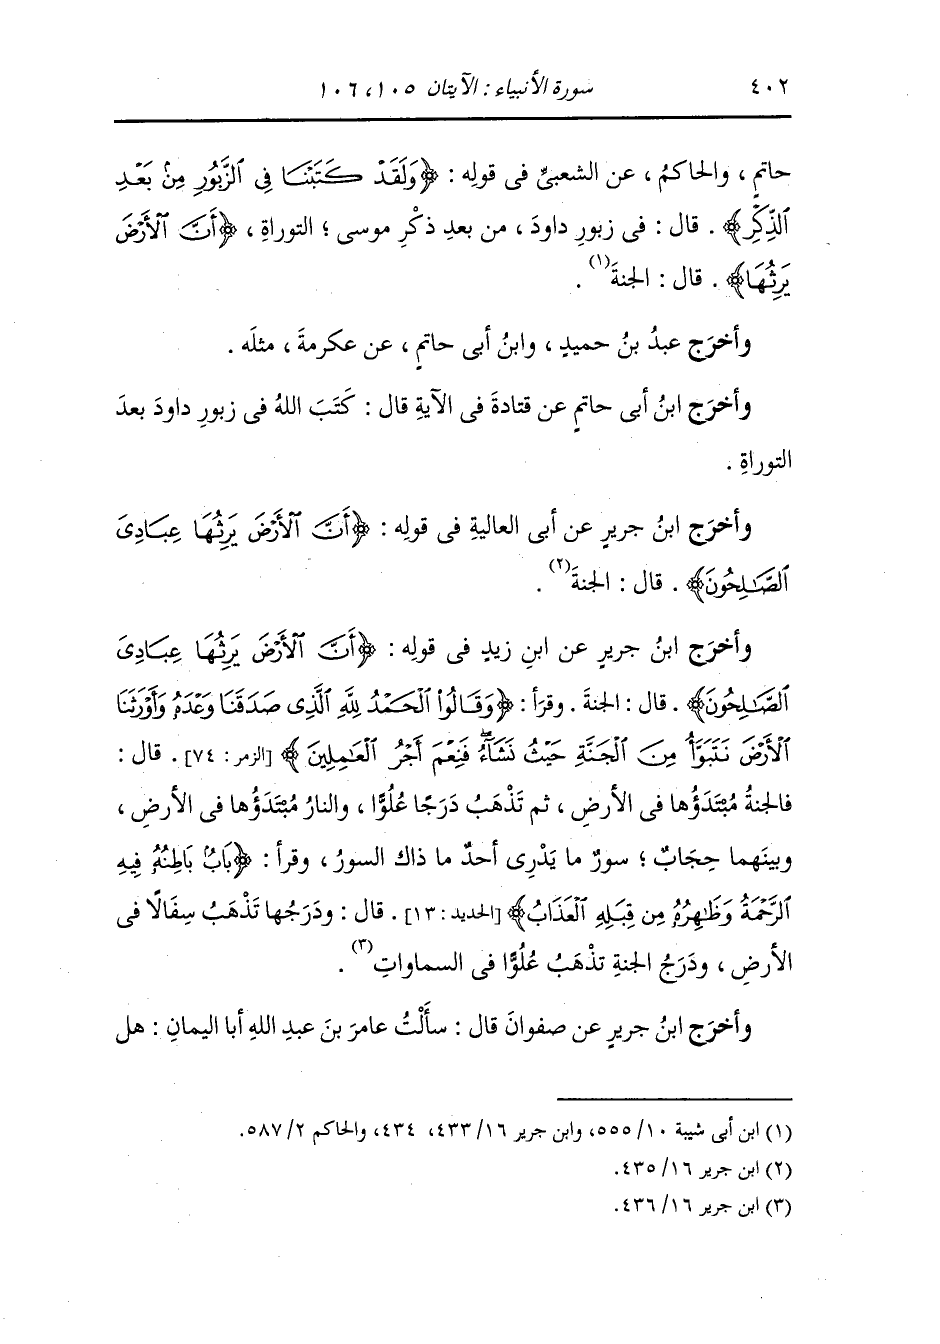 ٤٠٢ سورة الأنبياء : الآيتان ١٠٥، ١٠٦
حاتمٍ ، والحاكمُ ، عن الشعبيِّ فى قولِه : ﴿وَلَقَدْ كَتَبْنَا فِى ٱلزَّبُورِ مِنۢ بَعْدِ
ٱلذِّكْرِ﴾ . قال : فى زبورِ داودَ ، من بعدِ ذكْرِ موسى ؛ التوراةِ ، ﴿أَنَّ ٱلْأَرْضَ
يَرِثُهَا﴾ . قال : الجنةَ(١) .
وأخرَج عبدُ بنُ حميدٍ ، وابنُ أبى حاتمٍ ، عن عكرمةَ ، مثلَه .
وأخرَج ابنُ أبى حاتمٍ عن قتادةَ فى الآيةِ قال : كَتَبَ اللهُ فى زبورِ داودَ بعدَ
التوراةِ .
وأخرَج ابنُ جريرٍ عن أبى العاليةِ فى قولِه : ﴿أَنَّ ٱلْأَرْضَ يَرِثُهَا عِبَادِىَ
ٱلصَّـٰلِحُونَ﴾ . قال : الجنةَ(٢) .
وأخرَج ابنُ جريرٍ عن ابنِ زيدٍ فى قولِه : ﴿أَنَّ ٱلْأَرْضَ يَرِثُهَا عِبَادِىَ
ٱلصَّـٰلِحُونَ﴾ . قال : الجنة . وقرَأ : ﴿وَقَالُوا۟ ٱلْحَمْدُ لِلَّهِ ٱلَّذِى صَدَقَنَا وَعْدَهُۥ وَأَوْرَثَنَا
ٱلْأَرْضَ نَتَبَوَّأُ مِنَ ٱلْجَنَّةِ حَيْثُ نَشَآءُ ۖ فَنِعْمَ أَجْرُ ٱلْعَـٰمِلِينَ ﴾ [الزمر : ٧٤] . قال :
فالجنةُ مُبْتَدَؤُها فى الأرضِ ، ثم تَذْهَبُ دَرَجًا عُلُوًّا ، والنارُ مُبْتَدَؤُها فى الأرضِ ،
وبينَهما حِجَابٌ ؛ سورٌ ما يَدْرِى أحدٌ ما ذاك السورُ ، وقرأ : ﴿بَابٌۢ بَاطِنُهُۥ فِيهِ
ٱلرَّحْمَةُ وَظَـٰهِرُهُۥ مِن قِبَلِهِ ٱلْعَذَابُ﴾ [الحديد : ١٣] . قال : ودَرَجُها تَذْهَبُ سِفَالًا فى
الأرضِ ، ودَرَجُ الجنةِ تذْهَبُ عُلُوًّا فى السماواتِ(٣) .
وأخرَج ابنُ جريرٍ عن صفوانَ قال : سأَلْتُ عامرَ بنَ عبدِ اللهِ أبا اليمانِ : هل
(١) ابن أبى شيبة ١٠/ ٥٥٥، وابن جرير ١٦/ ٤٣٣، ٤٣٤، والحاكم ٢/ ٥٨٧.
(٢) ابن جرير ١٦/ ٤٣٥.
(٣) ابن جرير ١٦/ ٤٣٦.